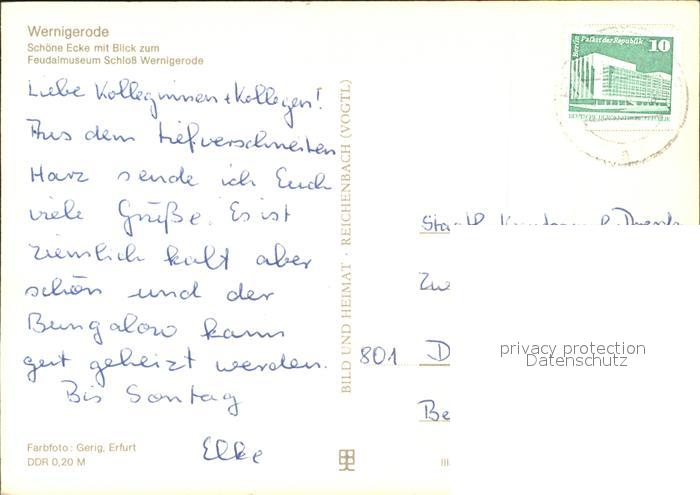 Wernigerode
Schöne Ecke mit Blick zum
Feudalmuseum Schloß Wernigerode
Liebe Kolleginnen + Kollegen!
Aus dem tiefverschneiten
Harz sende ich Euch
viele Grüße. Es ist
ziemlich kalt aber
schön und der
Bungalow kann
gut geheizt werden.
Bis Sontag
Elke
Farbfoto: Gerig, Erfurt
DDR 0,20 M
BILD UND HEIMAT · REICHENBACH (VOGTL)
Berlin Palast der Republik 10
DEUTSCHE DEMOKRATISCHE REPUBLIK
801 D
Be
III
privacy protection
Datenschutz